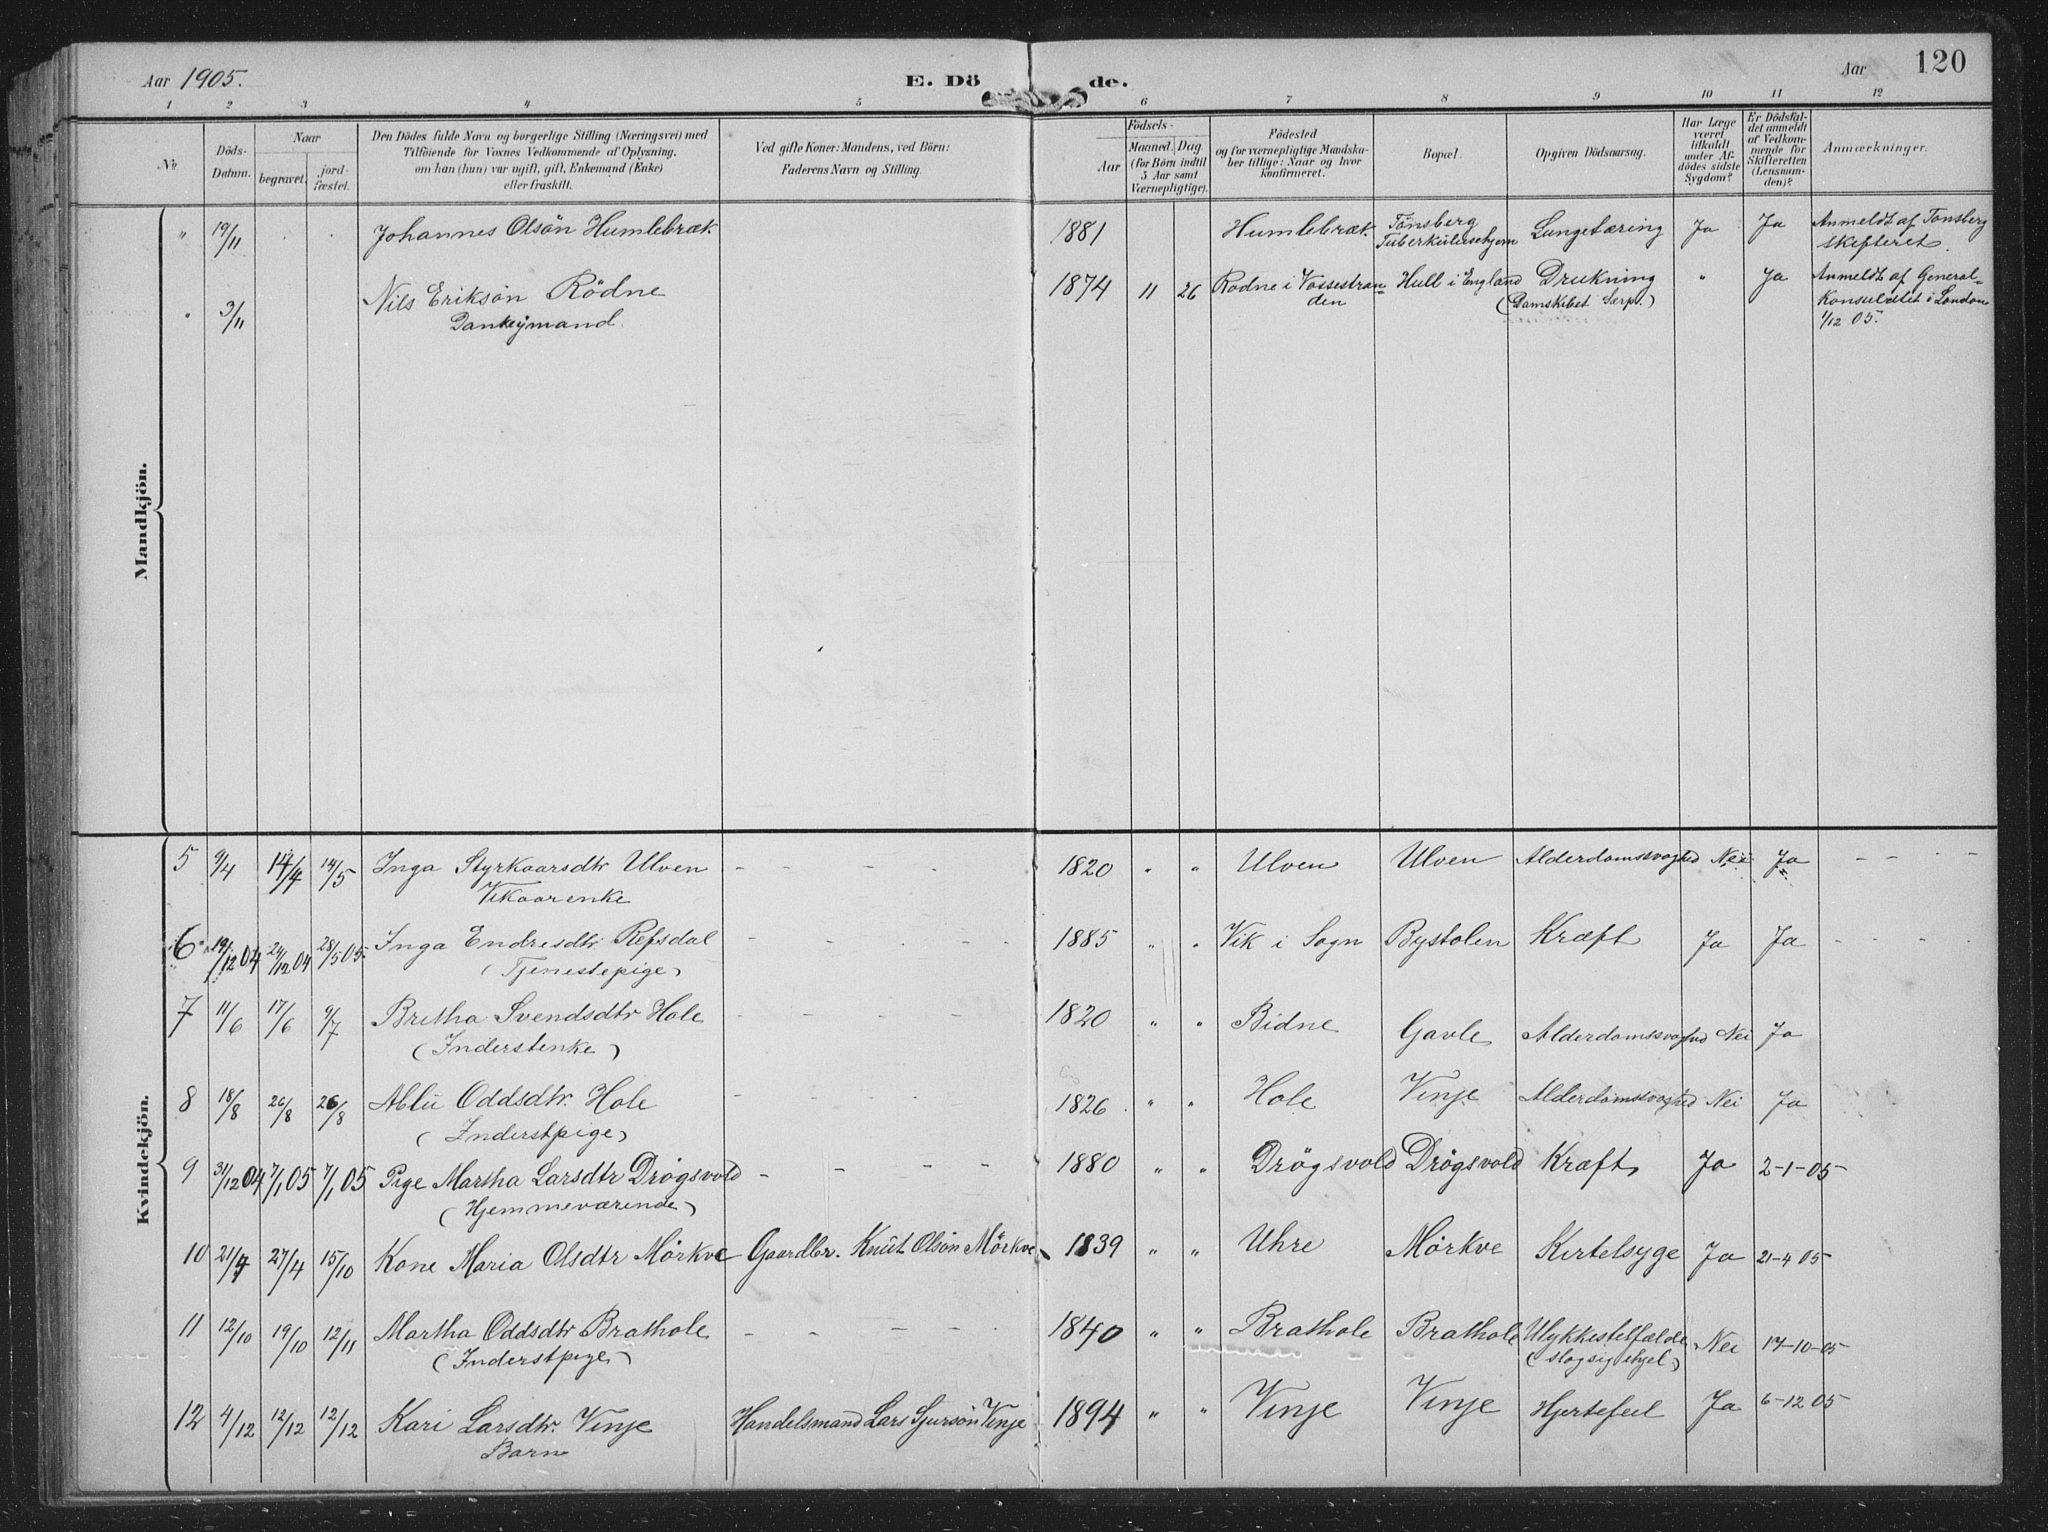 Aar 1905.
E. Dö de.
Aar
120
1 2 3 4 5 6 7 8 9 10 11 12
№
Döds-Datum.
Naar
begravet. jordfæstet.
Den Dödes fulde Navn og borgerlige Stilling (Næringsvei) med
Tilföiende for Voxnes Vedkommende af Oplysning,
om han (hun) var ugift, gift, Enkemand (Enke)
eller fraskilt.
Ved gifte Koner: Mandens, ved Börn:
Faderens Navn og Stilling.
Födsels-
Aar
Maaned. (for Börn indtil 5 Aar samt Værnepligtige).
Dag.
Födested
og for værnepligtige Mandskaber tillige: Naar og hvor konfirmeret.
Bopæl.
Opgiven Dödsaarsag.
Har Læge været tilkaldt under Afdödes sidste Sygdom?
Er Dödsfaldet anmeldt af Vedkommende for Skifteretten (Lensmanden)?
Anmærkninger.
Mandkjön.
" 19/11 Johannes Olsön Humlebræk. 1881 Humlebræk. Tönsberg Lungetæring Ja Ja Anmeldt af Tonsberg
Tuberkulusehjem skifteret.
" 3/11 Nils Eriksön Rödne 1874 11 26 Rodne i Vossestran- Hull i England Drukning " Ja Anmeldt af General-
Dankeymand. den (Damskibet Serp.) Konsulatet i London
1/12 05.
Kvindekjön.
5 9/4 14/4 14/5 Inga Styrkaarsdtr Ulven 1820 " " Ulven Ulven Alderdomssvaghed Nei Ja
Vikaarenke
6 19/12 04 24/12 04 28/5 05. Inga Endresdtr Refsdal 1885 " " Vik i Sogn Bystolen Kræft Ja Ja
(Tjenestepige)
7 11/6 17/6 9/7 Britha Svendsdtr Hole 1820 " " Bidne Gavle Alderdomssvaghed Nei Ja
(Inderstenke)
8 18/8 26/8 26/8 Ablu Oddsdtr. Hole 1826 " " Hole Vinje Alderdomssvaghed Nei Ja
(Inderstpige)
9 31/12 04 7/1 05 7/1 05 Pige Martha Larsdtr Drögsvold 1880 " " Drögsvold Drögsvold Kræft Ja 2-1-05
(Hjemmeværende)
10 21/4 27/4 15/10 Kone Maria Olsdtr Mörkve Gaardbr. Knut Olsön Mörkve 1839 " " Uhre Mörkve Kirtelsyge Ja 21-4 05
11 12/10 19/10 12/11 Martha Oddsdtr Brathole 1840 " " Brathole Brathole Ulykkestilfælde Nei 17-10-05
(Inderstpige) (slog sig ihjel)
12 4/12 12/12 12/12 Kari Larsdtr. Vinje Handelsmand Lars Sjursön Vinje 1894 " " Vinje Vinje Hjertefeil Ja 6-12 05
Barn